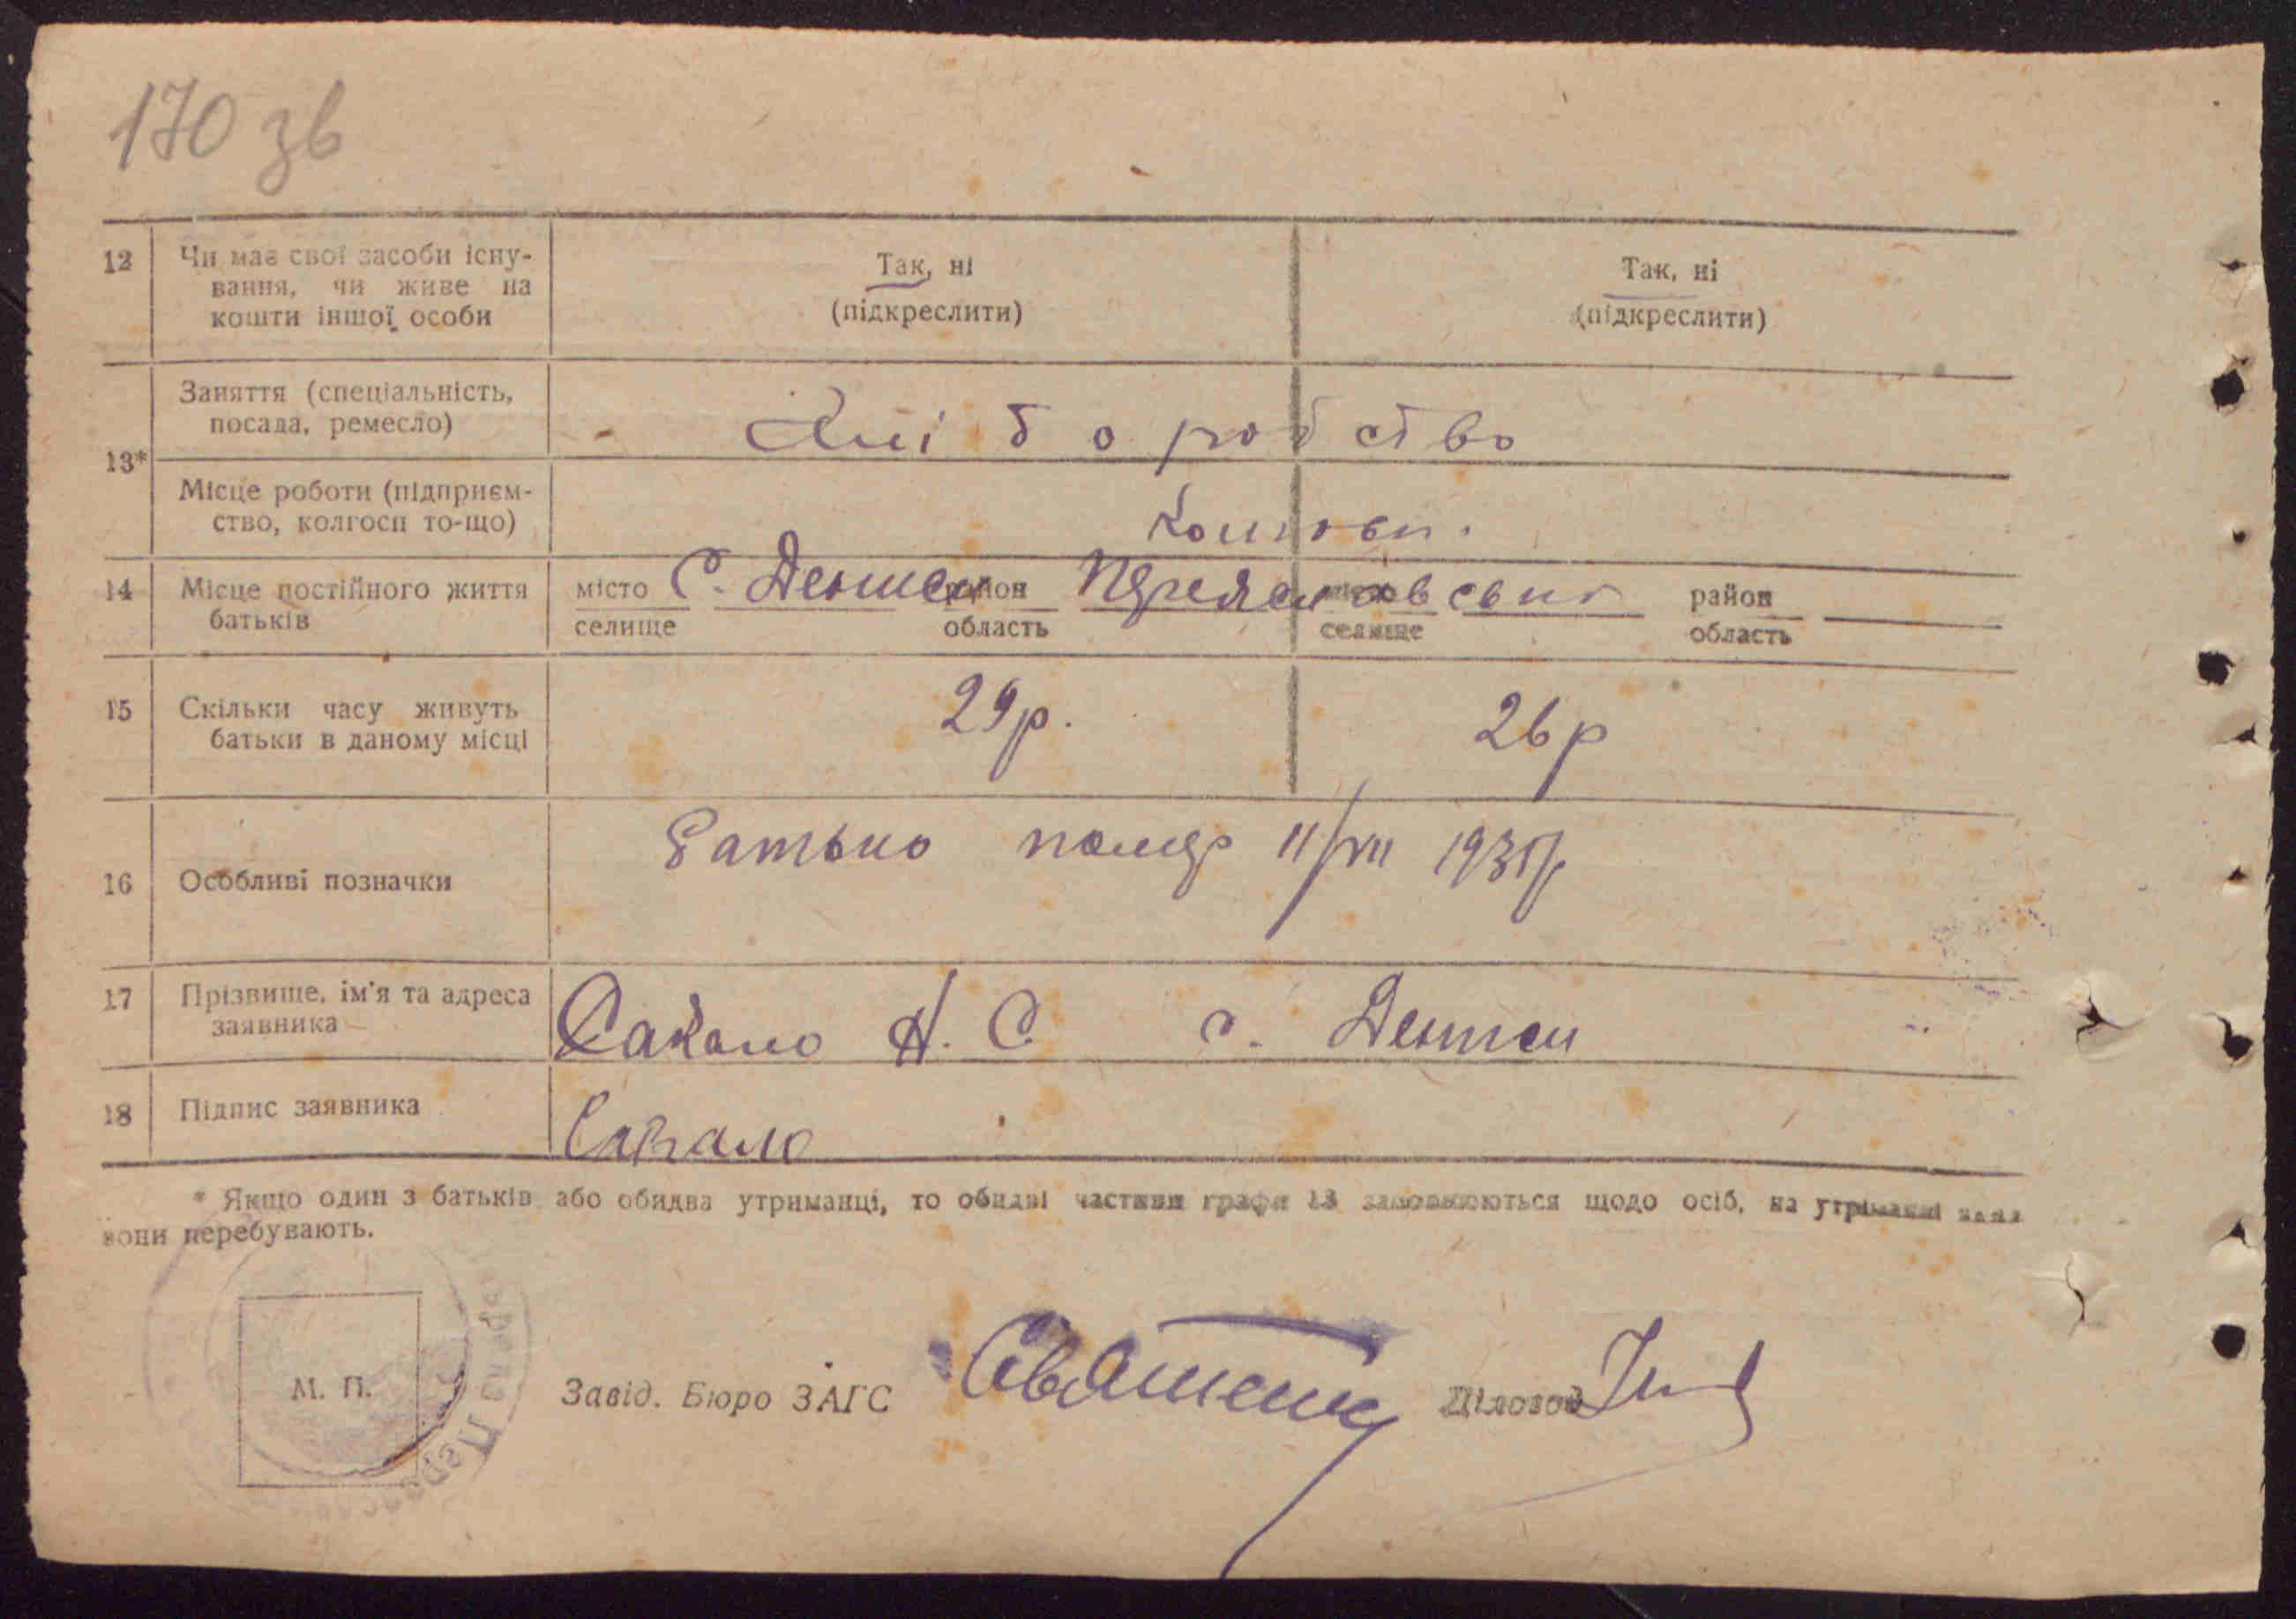 170 зв
12 Чи має свої засоби існу-
вання, чи живе на
кошти іншої особи
Так, ні
(підкреслити)
Так, ні
(підкреслити)
13*
Заняття (спеціальність,
посада, ремесло)
Хліборобство
Місце роботи (підприєм-
ство, колгосп то-що)
14 Місце постійного життя
батьків
місто С. Дениси район Переяславський район
селище область селище область
15 Скільки часу живуть
батьки в даному місці
29 р. 26 р
16 Особливі позначки
Батько помер 11/VII
17 Прізвище, ім'я та адреса
заявника
Сакало Н. С с. Дениси
18 Підпис заявника
Сакало
* Якщо один з батьків або обидва утриманці, то обидві частини графи 13 заповнюються щодо осіб, на утриманні яких
вони перебувають.
М. П.
Завід. Бюро ЗАГС Діловод